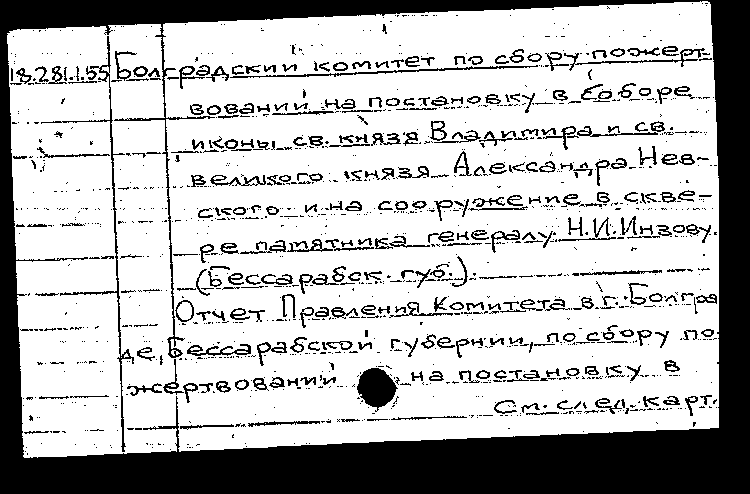 18.281.1.55 Болградский комитет по сбору пожерт-
вований на постановку в соборе
иконы св. князя Владимира и св.
великого князя Александра Нев-
ского и на сооружение в скве-
ре памятника генералу Н.И.Инзову.
(Бессарабск. губ.).
Отчет Правления Комитета в г. Болгра
де, Бессарабской губернии, по сбору по-
жертвований на постановку в
См. след. карт.